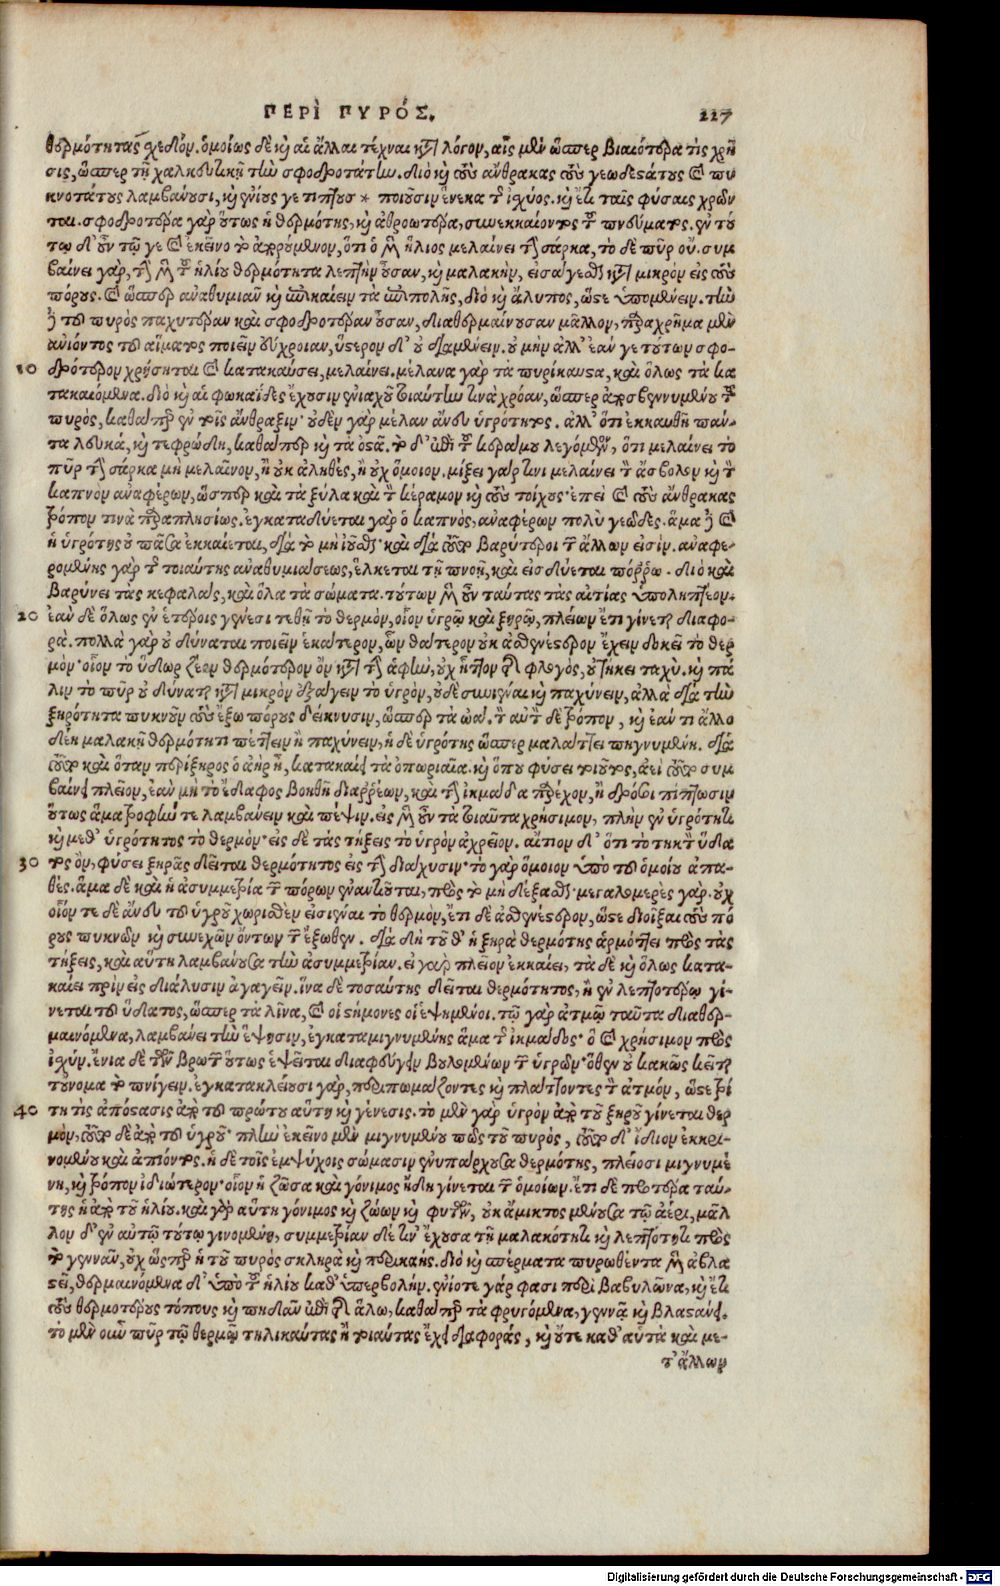 ΠΕΡῚ ΠΥΡΌΣ. 227
θερμότητας σχεδόν. ὁμοίως δὲ καὶ αἱ ἄλλαι τέχναι κατὰ λόγον, αἷς μὲν ὥσπερ βιαιότερα τὶς χρῆ
σις, ὥσπερ τῇ χαλκευτικῇ τὴν σφοδροτάτην. διὸ καὶ τοὺς ἄνθρακας τοὺς γεωδεστάτους καὶ πυ
κνοτάτους λαμβάνουσι, καὶ ἐνίους γε τιπῆσ * ποιοῦσιν ἕνεκα τῆς ἰσχύος. καὶ ἔτι ταῖς φύσαις χρῶν
ται. σφοδροτέρα γὰρ οὕτως ἡ θερμότης, καὶ ἀθροωτέρα, συνεκκαίοντος τοῦ πνεύματος. ἐν τού
τῳ δ' οὖν τῷ γε καὶ ἐκεῖνο τὸ ἀπορούμενον, ὅτι ὁ μὲν ἥλιος μελαίνει τὴν σάρκα, τὸ δὲ πῦρ οὔ. συμ
βαίνει γὰρ, τὴν μὲν τοῦ ἡλίου θερμότητα λεπτὴν οὖσαν, καὶ μαλακὴν, εἰσάγεσθαι κατὰ μικρὸν εἰς τοὺς
πόρους. καὶ ὥσπερ ἀναθυμιᾶν καὶ ἐπικαίειν τὰ ἐπιπολῆς, διὸ καὶ ἄλυπος, ὥστε ὑπομένειν. τὴν
δὲ τοῦ πυρὸς παχυτέραν καὶ σφοδροτέραν οὖσαν, διαθερμαίνουσαν μᾶλλον, παραχρῆμα μὲν
ἀνιόντος τοῦ αἵματος ποιεῖν εὔχροιαν, ὕστερον δ' οὐ διαμένειν. οὐ μὴν ἀλλ' ἐάν γε τούτων σφο-
10 δρότερον χρήσηται καὶ κατακαύσει, μελαίνει. μέλανα γὰρ τὰ πυρίκαυστα, καὶ ὅλως τὰ κα
τακαιόμενα. διὸ καὶ αἱ φωκαΐδες ἔχουσιν ἐνιαχοῦ τοιαύτην τινὰ χρόαν, ὥσπερ ἀποσβεννυμένου τοῦ
πυρὸς, καθάπερ ἐν τοῖς ἄνθραξιν· οὐδὲν γὰρ μέλαν ἄνευ ὑγρότητος. ἀλλ' ὅτι ἐκκαυθῇ πάν-
τα λευκά, καὶ τεφρώδη, καθάπερ καὶ τὰ ὀστᾶ. τὸ δ' ἐπὶ τοῦ κεράμου λεγόμενον, ὅτι μελαίνει τὸ
πῦρ τὴν σάρκα μὴ μελαῖνον, ἢ οὐκ ἀληθὲς, ἢ οὐχ ὅμοιον. μίξει γάρ τινι μελαίνει τὸν ἄσβολον καὶ τὸν
καπνὸν ἀναφέρων, ὥσπερ καὶ τὰ ξύλα καὶ τὸν κέραμον καὶ τοὺς τοίχους· ἐπεὶ καὶ τοὺς ἄνθρακας
τρόπον τινὰ παραπλησίως. ἐγκαταδύεται γὰρ ὁ καπνὸς, ἀναφέρων πολὺ γεῶδες. ἅμα δὲ καὶ
ἡ ὑγρότης οὐ πᾶσα ἐκκαίεται, διὰ τὸ μὴ ἰοῦσθαι· καὶ διὰ τοῦτο βαρύτεροι τῶν ἄλλων εἰσίν. ἀναφε-
ρομένης γὰρ τῆς τοιαύτης ἀναθυμιάσεως, ἕλκεται τῇ πνοῇ, καὶ εἰσδύεται πόῤῥω. διὸ καὶ
βαρύνει τὰς κεφαλὰς, καὶ ὅλα τὰ σώματα. τούτων μὲν οὖν ταύτας τὰς αἰτίας ὑποληπτέον.
20 ἐὰν δὲ ὅλως ἐν ἑτέροις γένεσι τεθῇ τὸ θερμὸν, οἷον ὑγρῷ καὶ ξηρῷ, πλείων ἔτι γίνεται διαφο-
ρά. πολλὰ γὰρ οὐ δύναται ποιεῖν ἑκάτερον, ὧν θάτερον οὐκ ἀσθενέστερον ἔχειν δοκεῖ τὸ θερ
μόν· οἷον τὸ ὕδωρ ζέον θερμότερον ὂν κατὰ τὴν ἁφὴν, οὐχ ἧττον τῆς φλογὸς, οὐ τήκει ταχύ. καὶ πά
λιν τὸ πῦρ οὐ δύναται κατὰ μικρὸν ἐξάγειν τὸ ὑγρὸν, οὐδὲ συνιέναι καὶ παχύνειν, ἀλλὰ διὰ τὴν
ξηρότητα πυκνοῦν τοὺς ἔξω πόρους δείκνυσιν, ὥσπερ τὰ ὠά. τὸν αὐτὸν δὲ τρόπον, καὶ ἐάν τι ἄλλο
δέῃ μαλακῇ θερμότητι πέττειν ἢ παχύνειν, ἡ δὲ ὑγρότης ὥσπερ μαλάττει πηγνυμένη. διὰ
τοῦτο καὶ ὅταν περίξηρος ὁ ἀὴρ ᾖ, κατακαίει τὰ ὀπωριαῖα. καὶ ὅπου φύσει τοιοῦτος, ἀεὶ τοῦτο συμ
βαίνει πλεῖον, ἐὰν μὴ τὸ ἔδαφος βοηθῇ διαῤῥέων, καὶ τὴν ἰκμάδα παρέχον, ἢ δρόσοι πίπτωσιν
οὕτως ἅμα τροφήν τε λαμβάνειν καὶ πέψιν. εἰς μὲν οὖν τὰ τοιαῦτα χρήσιμον, πλὴν ἐν ὑγρότητι
καὶ μεθ' ὑγρότητος τὸ θερμόν· εἰς δὲ τὰς τήξεις τὸ ὑγρὸν ἀχρεῖον. αἴτιον δ' ὅτι τὸ τηκτὸν ὕδα
30 τος ὂν, φύσει ξηρᾶς δεῖται θερμότητος εἰς τὴν διάχυσιν· τὸ γὰρ ὅμοιον ὑπὸ τοῦ ὁμοίου ἀπα-
θές. ἅμα δὲ καὶ ἡ ἀσυμμετρία τῶν πόρων ἐναντιοῦται, πρὸς τὸ μὴ δέξασθαι· μεγαλομερὲς γάρ. οὐχ
οἷόν τε δὲ ἄνευ τοῦ ὑγροῦ χωρισθὲν εἰσιέναι τὸ θερμὸν, ἔτι δὲ ἀσθενέστερον, ὥστε διοῖξαι τοὺς πό
ρους πυκνῶν καὶ συνεχῶν ὄντων τῶν ἔξωθεν. διὰ δὴ τοῦθ' ἡ ξηρὰ θερμότης ἁρμόττει πρὸς τὰς
τήξεις, καὶ αὕτη λαμβάνουσα τὴν ἀσυμμετρίαν. εἰ γὰρ πλεῖον ἐκκαίει, τὰ δὲ καὶ ὅλως κατα-
καίει πρὶν εἰς διάλυσιν ἀγαγεῖν. ἵνα δὲ τοσαύτης δεῖται θερμότητος, ἢ ἐν λεπτοτέρῳ γί-
νεται τοῦ ὕδατος, ὥσπερ τὰ λίνα, καὶ οἱ στήμονες οἱ ἑψημένοι. τῷ γὰρ ἀτμῷ ταῦτα διαθερ-
μαινόμενα, λαμβάνει τὴν ἕψησιν, ἐγκαταμιγνυμένης ἅμα τῆς ἰκμάδος· ὃ καὶ χρήσιμον πρὸς
ἰσχύν. ἔνια δὲ τῶν βρωτῶν οὕτως ἑψεῖται διαφεύγειν βουλομένων τῶν ὑγρῶν· ὅθεν οὐ κακῶς κεῖται
τοὔνομα τὸ πνίγειν. ἐγκατακλείουσι γὰρ, περιπωμάζοντες καὶ πλάττοντες τὸν ἀτμόν, ὥστε τρί
40 τη τὶς ἀπόστασις ἀπὸ τοῦ πρώτου αὕτη καὶ γένεσις. τὸ μὲν γὰρ ὑγρὸν ἀπὸ τοῦ ξηροῦ γίνεται θερ
μόν, τοῦτο δὲ ἀπὸ τοῦ ὑγροῦ· πλὴν ἐκεῖνο μὲν μιγνυμένου πως τοῦ πυρὸς, τοῦτο δ' ἴδιον ἐκκρι-
νομένου καὶ ἀπιόντος. ἡ δὲ τοῖς ἐμψύχοις σώμασιν ἐνυπάρχουσα θερμότης, πλείοσι μιγνυμέ
νη, καὶ τρόπον ἰδιώτερον· οἷον ἡ ζῶσα καὶ γόνιμος ἤδη γίνεται τῶν ὁμοίων. ἔτι δὲ προτέρα ταύ-
της ἡ ἀπὸ τοῦ ἡλίου. καὶ γὰρ αὕτη γόνιμος καὶ ζώων καὶ φυτῶν, οὐκ ἄμικτος μένουσα τῷ ἀέρι, μᾶλ
λον δ' ἐν αὐτῷ τούτῳ γινομένη, συμμετρίαν δέ τιν' ἔχουσα τῇ μαλακότητι καὶ λεπτότητι πρὸς
τὸ γεννᾶν, οὐχ ὥσπερ ἡ τοῦ πυρὸς σκληρὰ καὶ περικαής. διὸ καὶ σπέρματα πυρωθέντα μὲν ἀβλα
στεῖ, θερμαινόμενα δ' ὑπὸ τοῦ ἡλίου καθ' ὑπερβολήν. ἐνίοτε γάρ φασι περὶ Βαβυλῶνα, καὶ ἔτι
τοὺς θερμοτέρους τόπους καὶ πηδᾶν ἐπὶ τῆς ἅλω, καθάπερ τὰ φρυγόμενα, γεννᾷ καὶ βλαστάνει.
τὸ μὲν οὖν πῦρ τῷ θερμῷ τηλικαύτας ἢ τοιαύτας ἔχει διαφοράς, καὶ οὔτε καθ' αὑτὰ καὶ με-
τ' ἄλλων
Digitalisierung gefördert durch die Deutsche Forschungsgemeinschaft - DFG